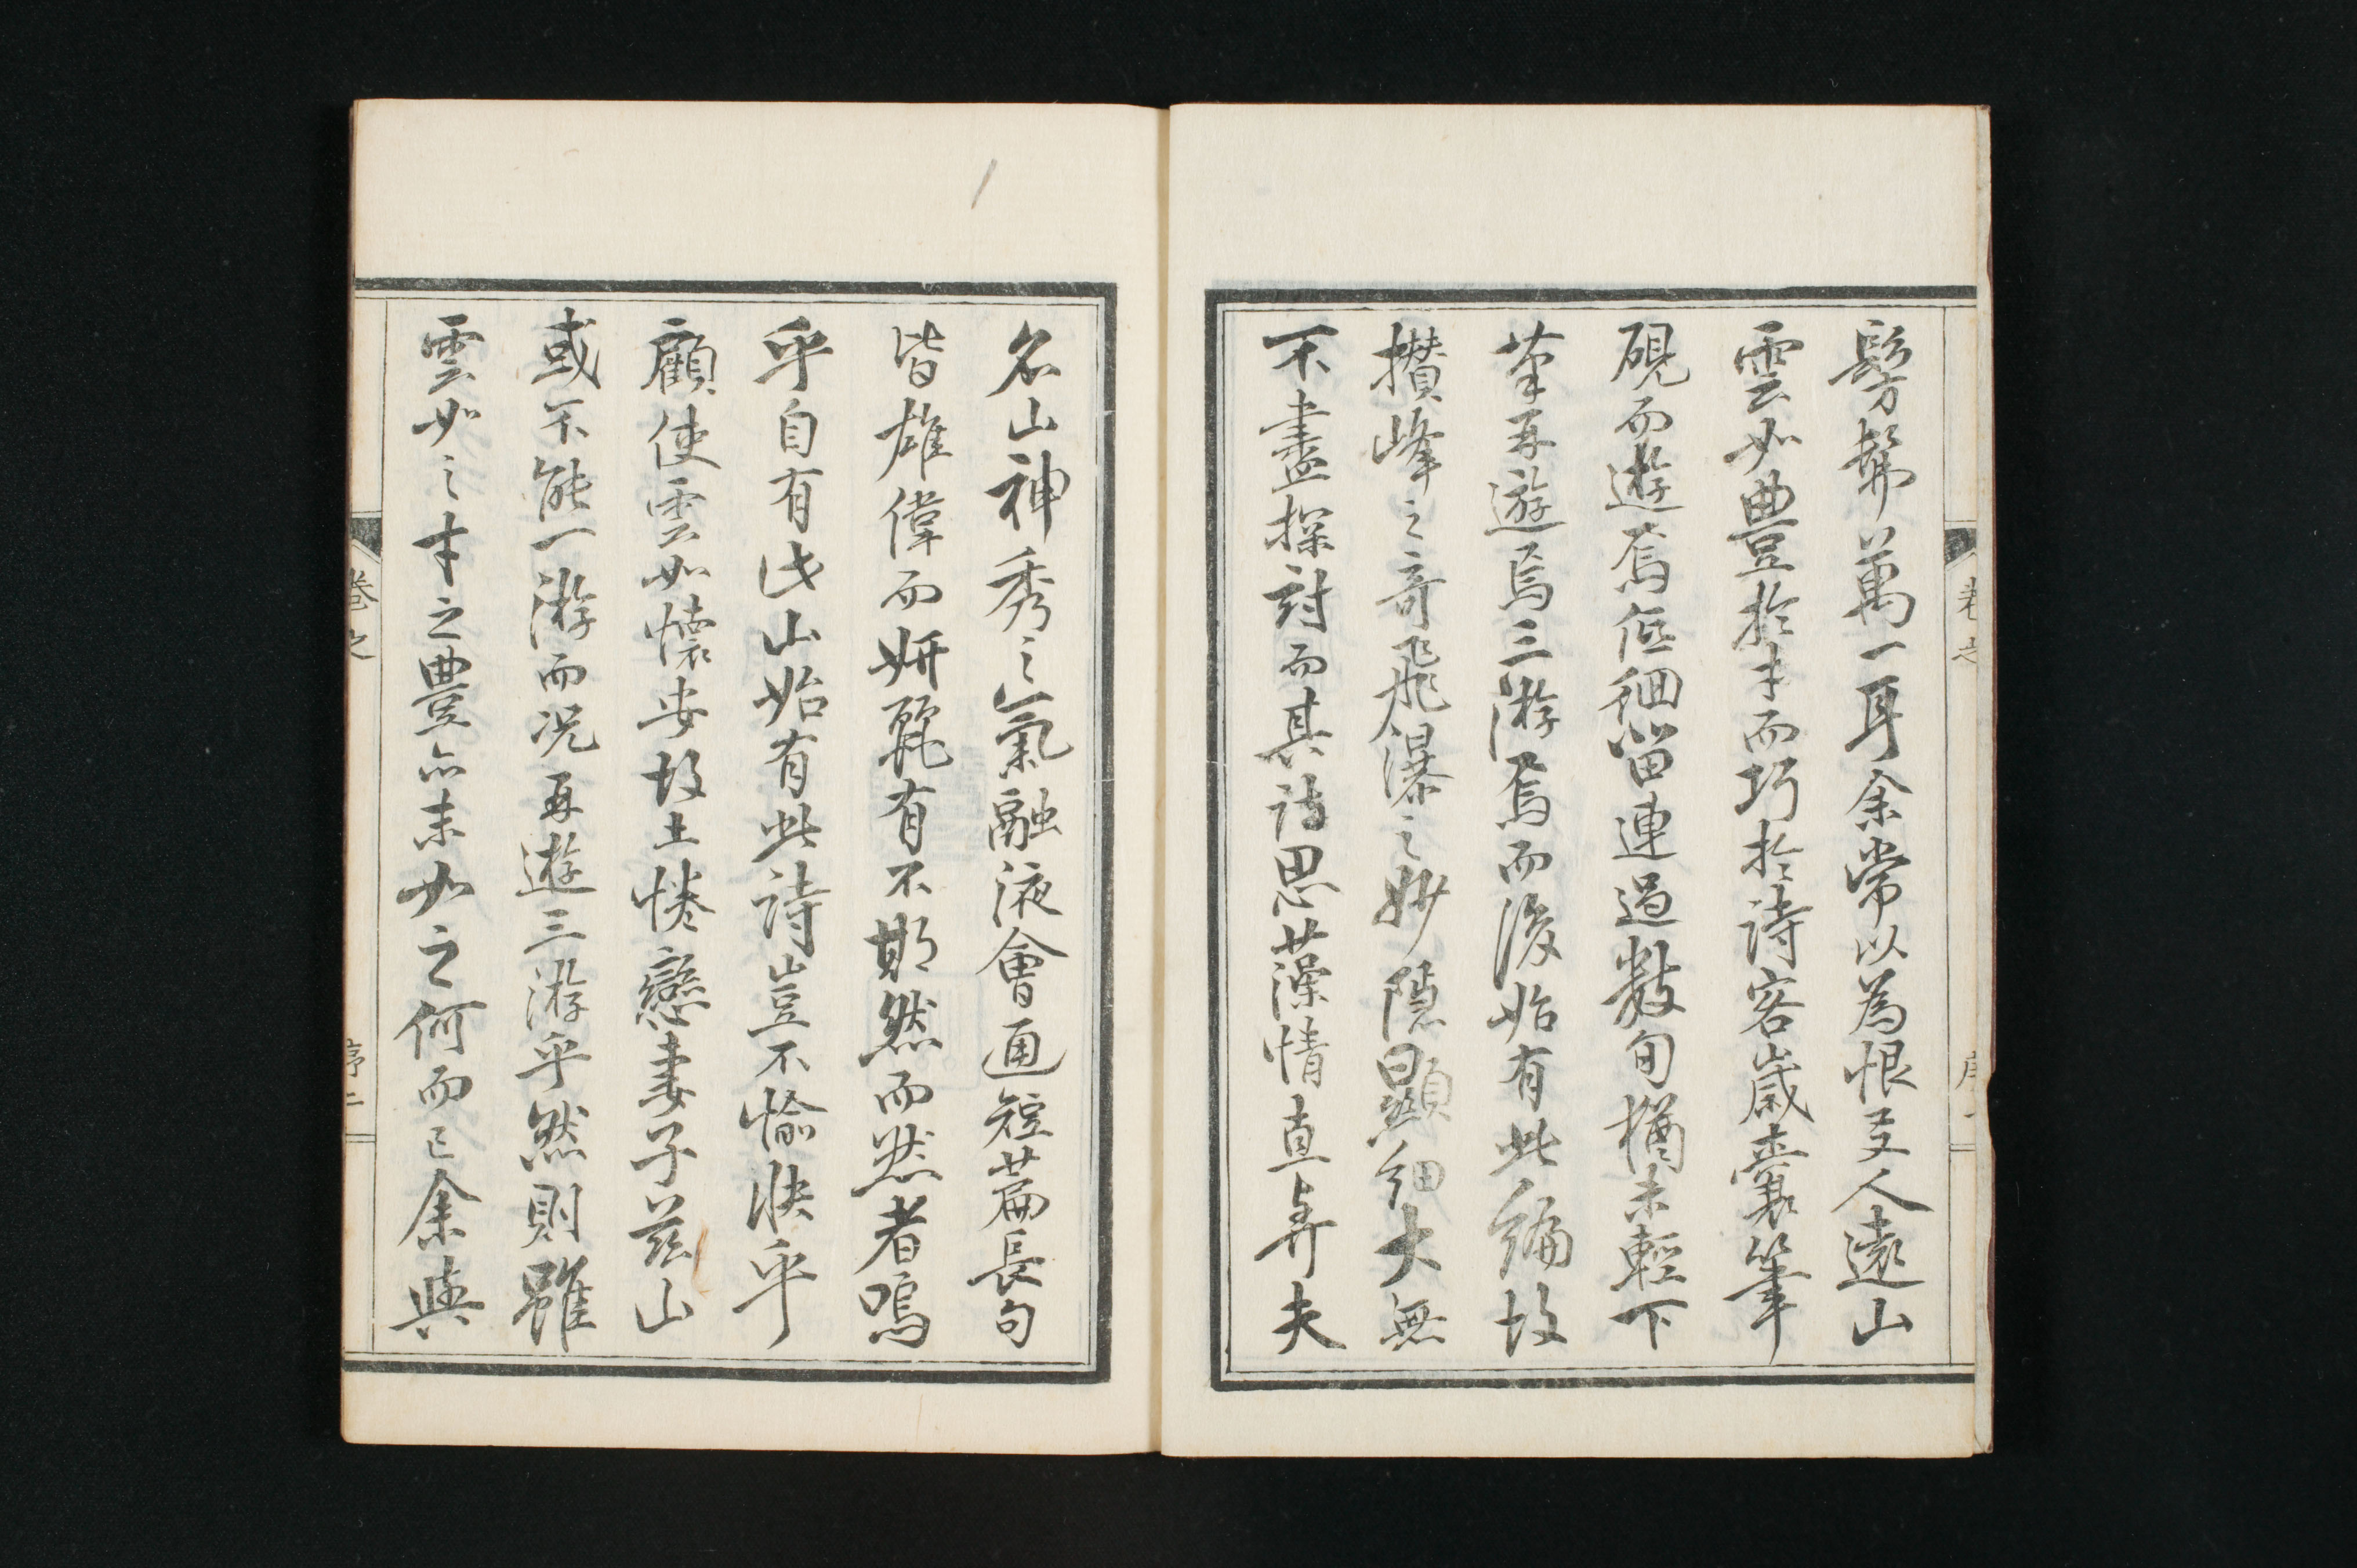 髣髴萬一耳余常以為恨友人遠山
雲如豊於才而巧於詩客歳嚢筆
硯而遊焉低徊留連過数旬猶未輕下
筆再遊焉三游焉而後始有此編故
攅峰之奇飛瀑之妙隠顯細大無
不盡探討而其詩思藻情直與夫
名山神秀之氣融液會通短篇長句
皆雄偉而妍麗有不期然而然者嗚
乎自有此山始有此詩豈不愉快乎
顧使雲如懷安故土惓戀妻子茲山
或不能一游而況再遊三游乎然則雖
雲如之才之豊亦末如之何而已余與
巻之
序二